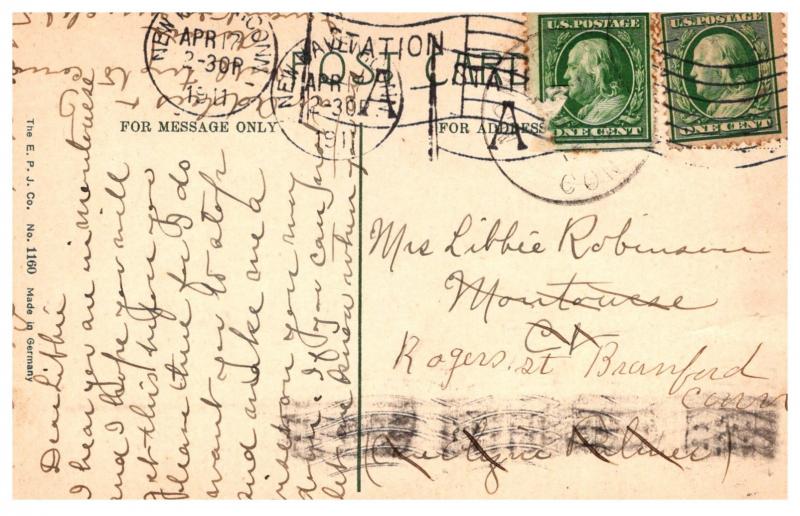 NEW HAVEN, CONN.
APR 17
2-30P
1911
NEW HAVEN
STATION
A
APR
2-30P
1911
POST CARD
U.S. POSTAGE
ONE CENT
U.S. POSTAGE
ONE CENT
CON
FOR MESSAGE ONLY
FOR ADDRESS
The E. P. J. Co. No. 1160 Made in Germany
Dear Libbie
I hear you are in montowese
and I hope you will
get this before you
please time for I do
want you to stop
and make me a
visit on you way
down. If you can
let me know when
Mrs Libbie Robinson
Montowese
Ct
Rogers. st Branford
Conn
Palmer)